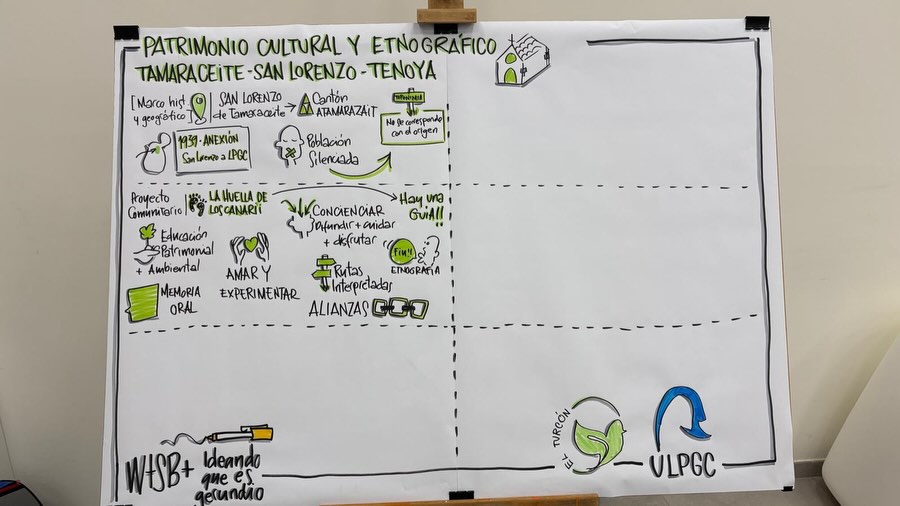 PATRIMONIO CULTURAL Y ETNOGRÁFICO
TAMARACEITE - SAN LORENZO - TENOYA
[Marco hist
y geográfico]
SAN LORENZO
de Tamaraceite
Cantón
ATAMARAZAIT
TOPONIMIA
No se corresponde
con el origen
1939 · ANEXIÓN
San Lorenzo a LPGC
Población
Silenciada
Proyecto
Comunitario
LA HUELLA DE
LOS CANARII
Hay una
GUÍA!!
CONCIENCIAR
Difundir + cuidar
+ disfrutar
Educación
Patrimonial
+ Ambiental
AMAR Y
EXPERIMENTAR
Fiu!!
ETNOGRAFÍA
Rutas
Interpretadas
MEMORIA
ORAL
ALIANZAS
W+SB+
Ideando
que es
gerundio
EL TURCÓN
ULPGC